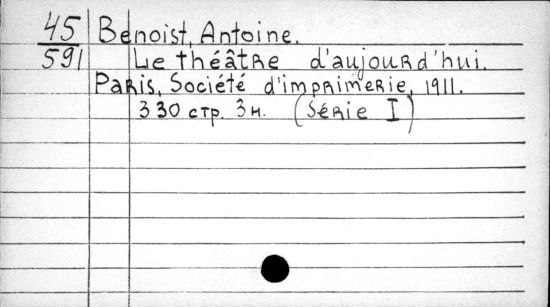 45 Benoist, Antoine.
591 Le théâtre d'aujourd'hui.
Paris, Société d'imprimerie, 1911.
330 стр. 3 н. (Série I)